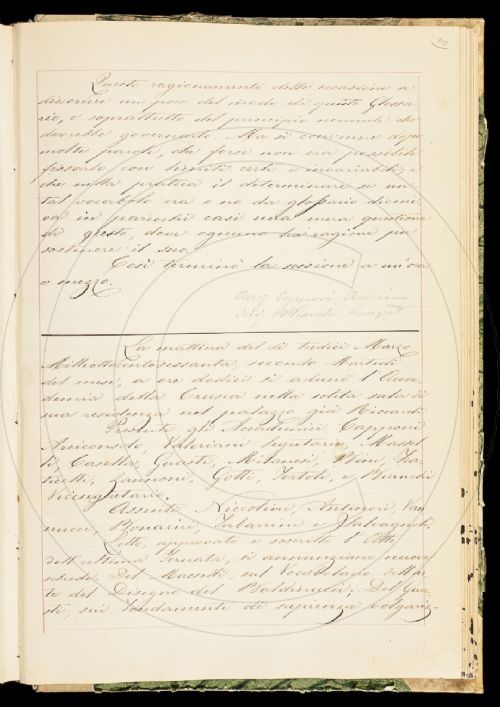 Questo ragionamento dette occasione a
discorrere un poco del modo di questo Glossa-
rio, e soprattutto del principio normale che
dovrebbe governarlo. Ma si convenne dopo
molte parole, che forse non era possibile
fissarlo con limiti certi e invariabili; e
che nella pratica il determinare se un
tal vocabolo era o no da glossario diveni-
va in parecchi casi una mera quistione
di gusto, dove ognuno ha ragione per
sostenere il suo.
Così terminò la sessione a un'ora
e mezzo.
La mattina del dì tredici Marzo
Milleottocentosessanta, secondo Martedì
del mese, a ore dodici si adunò l'Acca-
demia della Crusca nella solita sala di
sua residenza nel palazzo già Riccardi
Presenti gli Accademici Capponi
Arciconsolo, Valeriani Segretario, Massel-
li, Casella, Guasti, Milanesi, Bini, Za-
nnoni, Gotti, Tortoli, e Bianchi
Vicesegretario.
Assenti Niccolini, Antinori, Van-
nucci, Bonaini, Salvagnoli.
Letto, approvato e soscritto l'Atto
dell'ultima Tornata, si annunziano nuove
schede. Del Masselli, sul Vocabolario dell'Ar-
te del Disegno del Baldinucci. Del Gua-
sti, sui fondamenti di sapienza volgariz-